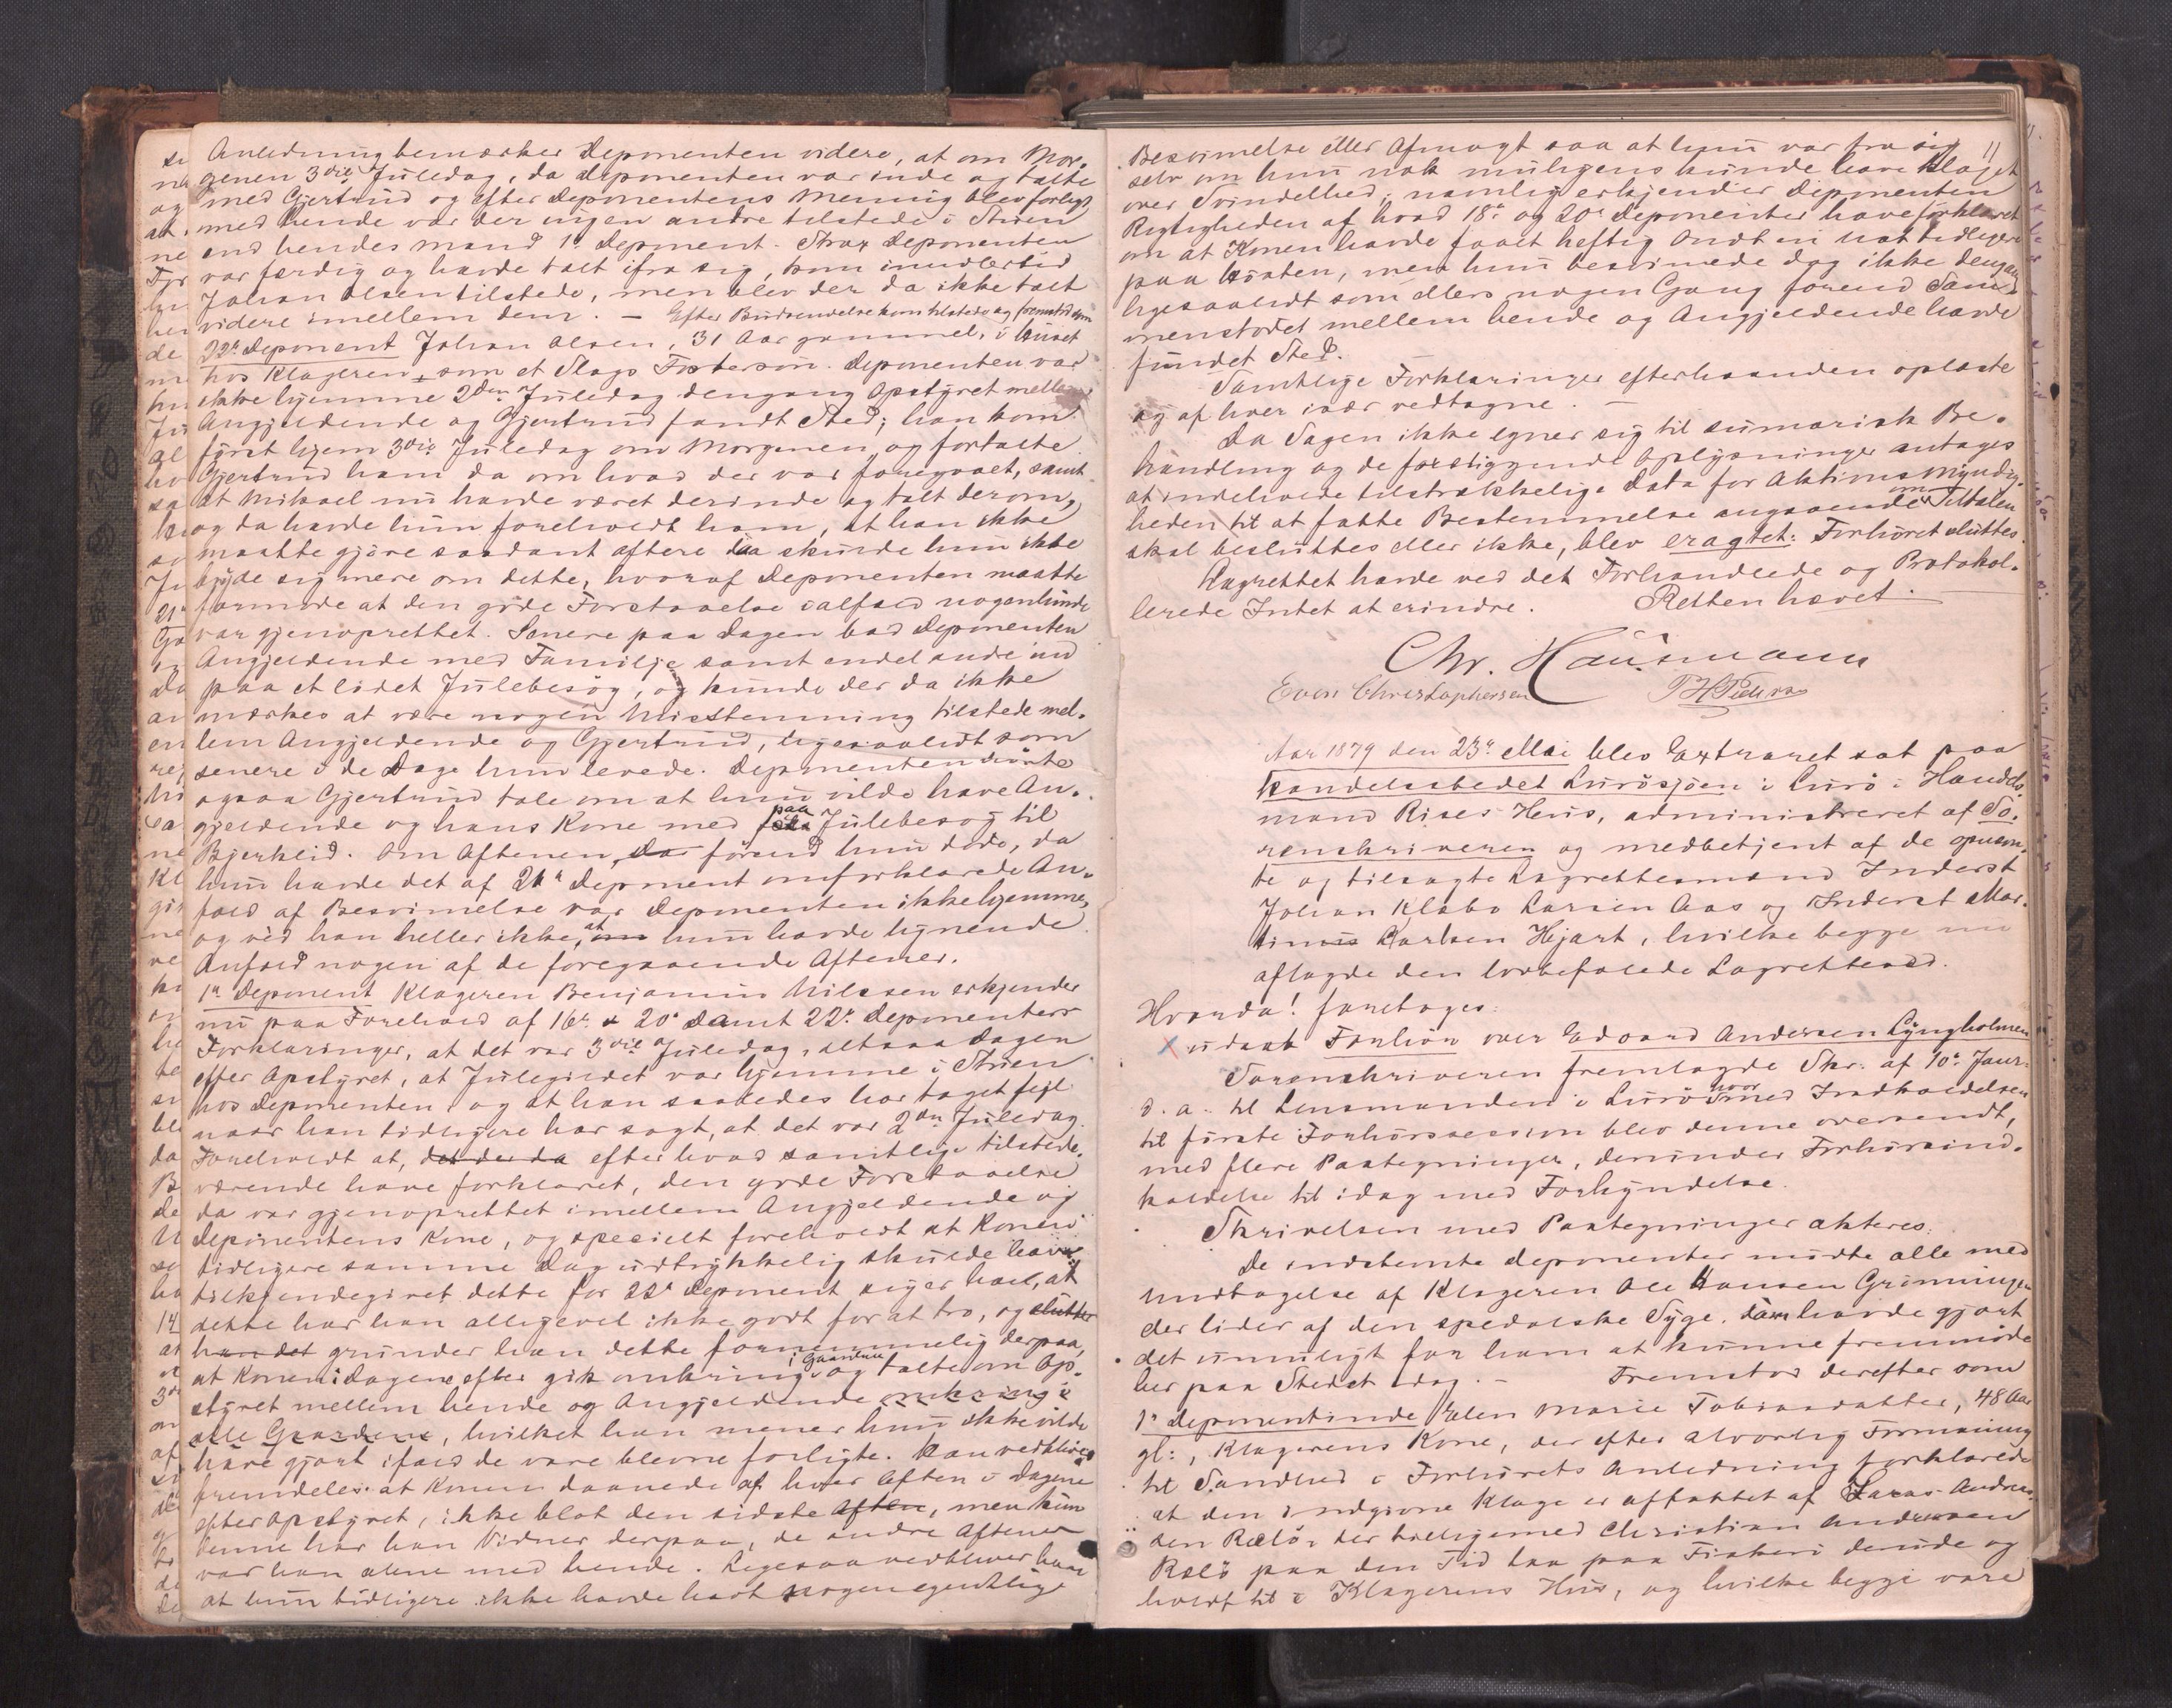 Anledning bemærker Deponenten videre, at om Mor-
genen 3die Juledag, da Deponenten var inde og talte
med Gjertrud og efter Deponentens Mening blev forligt
med hende var der ingen andre tilstede i Stuen
end hendes Mand 1ste Deponent. Strax Deponenten
var færdig og havde talt ifra sig, kom imidlertid
Johan Olsen tilstede, men blev der da ikke talt
videre imellem dem. — Efter Budsendelse kom tilstede og fremstod som
22de Deponent Johan Olsen, 31 Aar gammel, i Huset
hos Klageren, som et Slags Fostersøn. Deponenten var
ikke hjemme 2den Juledag dengang Opstyret mellem
Angjeldende og Gjertrud fandt Sted; han kom
først hjem 3die Juledag om Morgenen, og fortalte
Gjertrud ham da om hvad der var foregaaet, samt
at Mikael nu havde været derinde og talt derom,
og da havde hun foreholdt ham, at han ikke
maatte gjøre saadant oftere saa skulde hun ikke
bryde sig mere om dette, hvoraf Deponenten maatte
formode at den gode Forstaaelse ialfald nogenlunde
var gjenoprettet. Senere paa Dagen bad Deponenten
Angjeldende med Familje samt endel andre ind
paa et lidet Julebesøg, og kunde der da ikke
mærkes at være nogen Misstemning tilstede mel-
lem Angjeldende og Gjertrud, ligesaalidt som
senere i de Dage hun levede. Deponenten hørte
ogsaa Gjertrud tale om at hun vilde have An-
gjeldende og hans Kone med paa Julebesøg til
Bjerklid. Om Aftenen, da førend hun døde, da
hun havde det af 21de Deponent omforklarede An-
fald af Besvimelse var Deponenten ikke hjemme,
og ved han heller ikke, at om hun havde lignende
Anfald nogen af de foregaaende Aftener.
1ste Deponent Klageren Benjamin Nilssen erkjender
nu paa Forehold af 16de og 20de samt 22de Deponenters
Forklaringer, at det var 3die Juledag, altsaa Dagen
efter Opstyret, at Julegildet var hjemme i Stuen
hos Deponenten og at han saaledes har taget fejl
naar han tidligere har sagt, at det var 2den Juledag.
Foreholdt at, det der da efter hvad samtlige tilstede-
værende have forklaret, den gode Forstaaelse
da var gjenoprettet imellem Angjeldende og
Deponentens Kone, og specielt foreholdt at Konen
tidligere samme Dag udtrykkelig skulde have
tilkjendegivet dette for 22de Deponent siger han, at
dette har han alligevel ikke godt for at tro, og slutter
han det grunder han dette fornemmelig derpaa,
at Konen i Dagene efter gik omkring i Gaardene og talte om Op-
styret mellem hende og Angjeldende omkring i
alle Gaardene, hvilket han mener hun ikke vilde
have gjort ifald de vare blevne forligte. Han vedbliver
fremdeles at Konen daanede af hver Aften i Dagene
efter Opstyret, ikke blot den sidste Aften, men kun
denne har han Vidner derpaa, de andre Aftener
var han alene med hende. Ligesaa vedbliver han
at hun tidligere ikke havde havt nogen egentlige
11
Besvimelse eller Afmagt saa at hun var fra sig
selv om hun nok muligens kunde have klaget
over Svindelhed; namlig erkjender Deponenten
Rigtigheden af hvad 18de og 20de Deponenter have forklaret
om at Konen havde faaet heftig Ondt en Nat tidligere
paa Høsten, men hun besvimede dog ikke dengang
ligesaalidt som ellers nogen Gang førend Sam-
menstødet mellem hende og Angjeldende havde
fundet Sted.
Samtlige Forklaringer efterhaanden oplæste
og af hver især vedtagne. —
Da Sagen ikke egner sig til sumarisk Be-
handling og de foreliggende Oplysninger antages
at indeholde tilstrækkelige Data for Aktionsmyndig-
heden til at fatte Bestemmelse angaaende om Tiltalen
skal besluttes eller ikke, blev eragtet: Forhøret sluttes.
Lagrettet havde ved det Forhandlede og Protokol-
lerede Intet at erindre. Retten hævet.
Chr. Hausmann
Even Christophersen
Aar 1879 den 23de Mai blev Extraret sat paa
Handelsstedet Lurøsjøen i Lurø i Handels-
mand Rises Hus, administreret af So-
renskriveren og medbetjent af de opnævn-
te og tilsagte Lagrettesmænd Inderst
Johan Klæbo Larsen Aas og Inderst Mar-
tinus Karlsen Hjart, hvilke begge nu
aflagde den lovbefalede Lagretteed.
Hvorda! foretoges:
x udsat Forhør over Edvard Andersen Lyngholmen
Sorenskriveren fremlagde Skr. af 10de Janr.
d. a. til Lensmanden i Lurø hvor med Indkaldelsen
til første Forhørssession blev denne oversendt,
med flere Paategninger, derunder Forhørsind-
kaldelse til idag med Forkyndelse.
Skrivelsen med Paategninger akteres.
De indstemte Deponenter mødte alle med
Undtagelse af Klageren Ole Hansen Grønningen
der lider af den spedalske Syge, som havde gjort
det umuligt for ham at kunne fremmøde
her paa Stedet idag. — Fremstod derefter som
1ste Deponentinde Elen Marie Tobiasdatter, 48 Aar
gl:, Klagerens Kone, der efter alvorlig Formaning
til Sandhed i Forhørets Anledning forklarede
at den indgivne Klage er affattet af Lars Andrea-
sen Rølø, der tilligemed Christian Andreasen
Rølø paa den Tid laa paa Fiskeri derude og
holdt til i Klagerens Hus, og hvilke begge vare